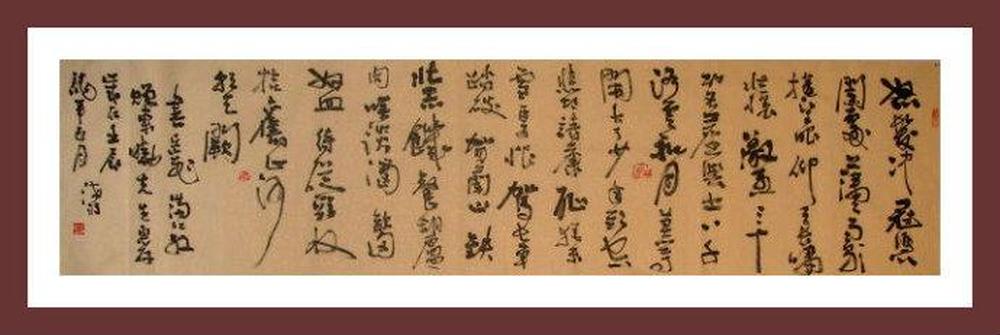 怒髮冲冠憑
闌處瀟瀟雨歇
抬望眼仰天長嘯
壯懷激烈三十
功名塵與土八千
路雲和月莫等
閒白了少年頭空
悲切靖康耻猶未
雪臣子恨駕長車
踏破賀蘭山缺
壯志饑餐胡虜
肉笑談渴飲匈
奴血待從頭收
拾舊山河
朝天闕
書岳飛滿江紅
先生惠存
歲在壬辰
龍年五月